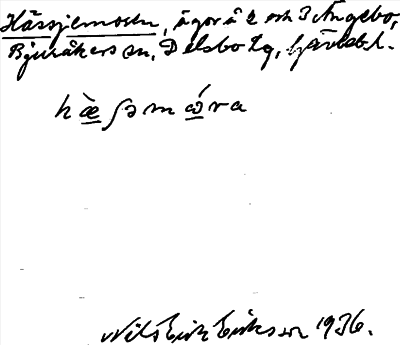 Hässjemoren, ägor å 2 och 3 Ängebo,
Bjuråkers sn, Delsbo tg, Gävlebl.
hæ̀ʃəmɷ́ra
Nils Erik Eriksson 1936.